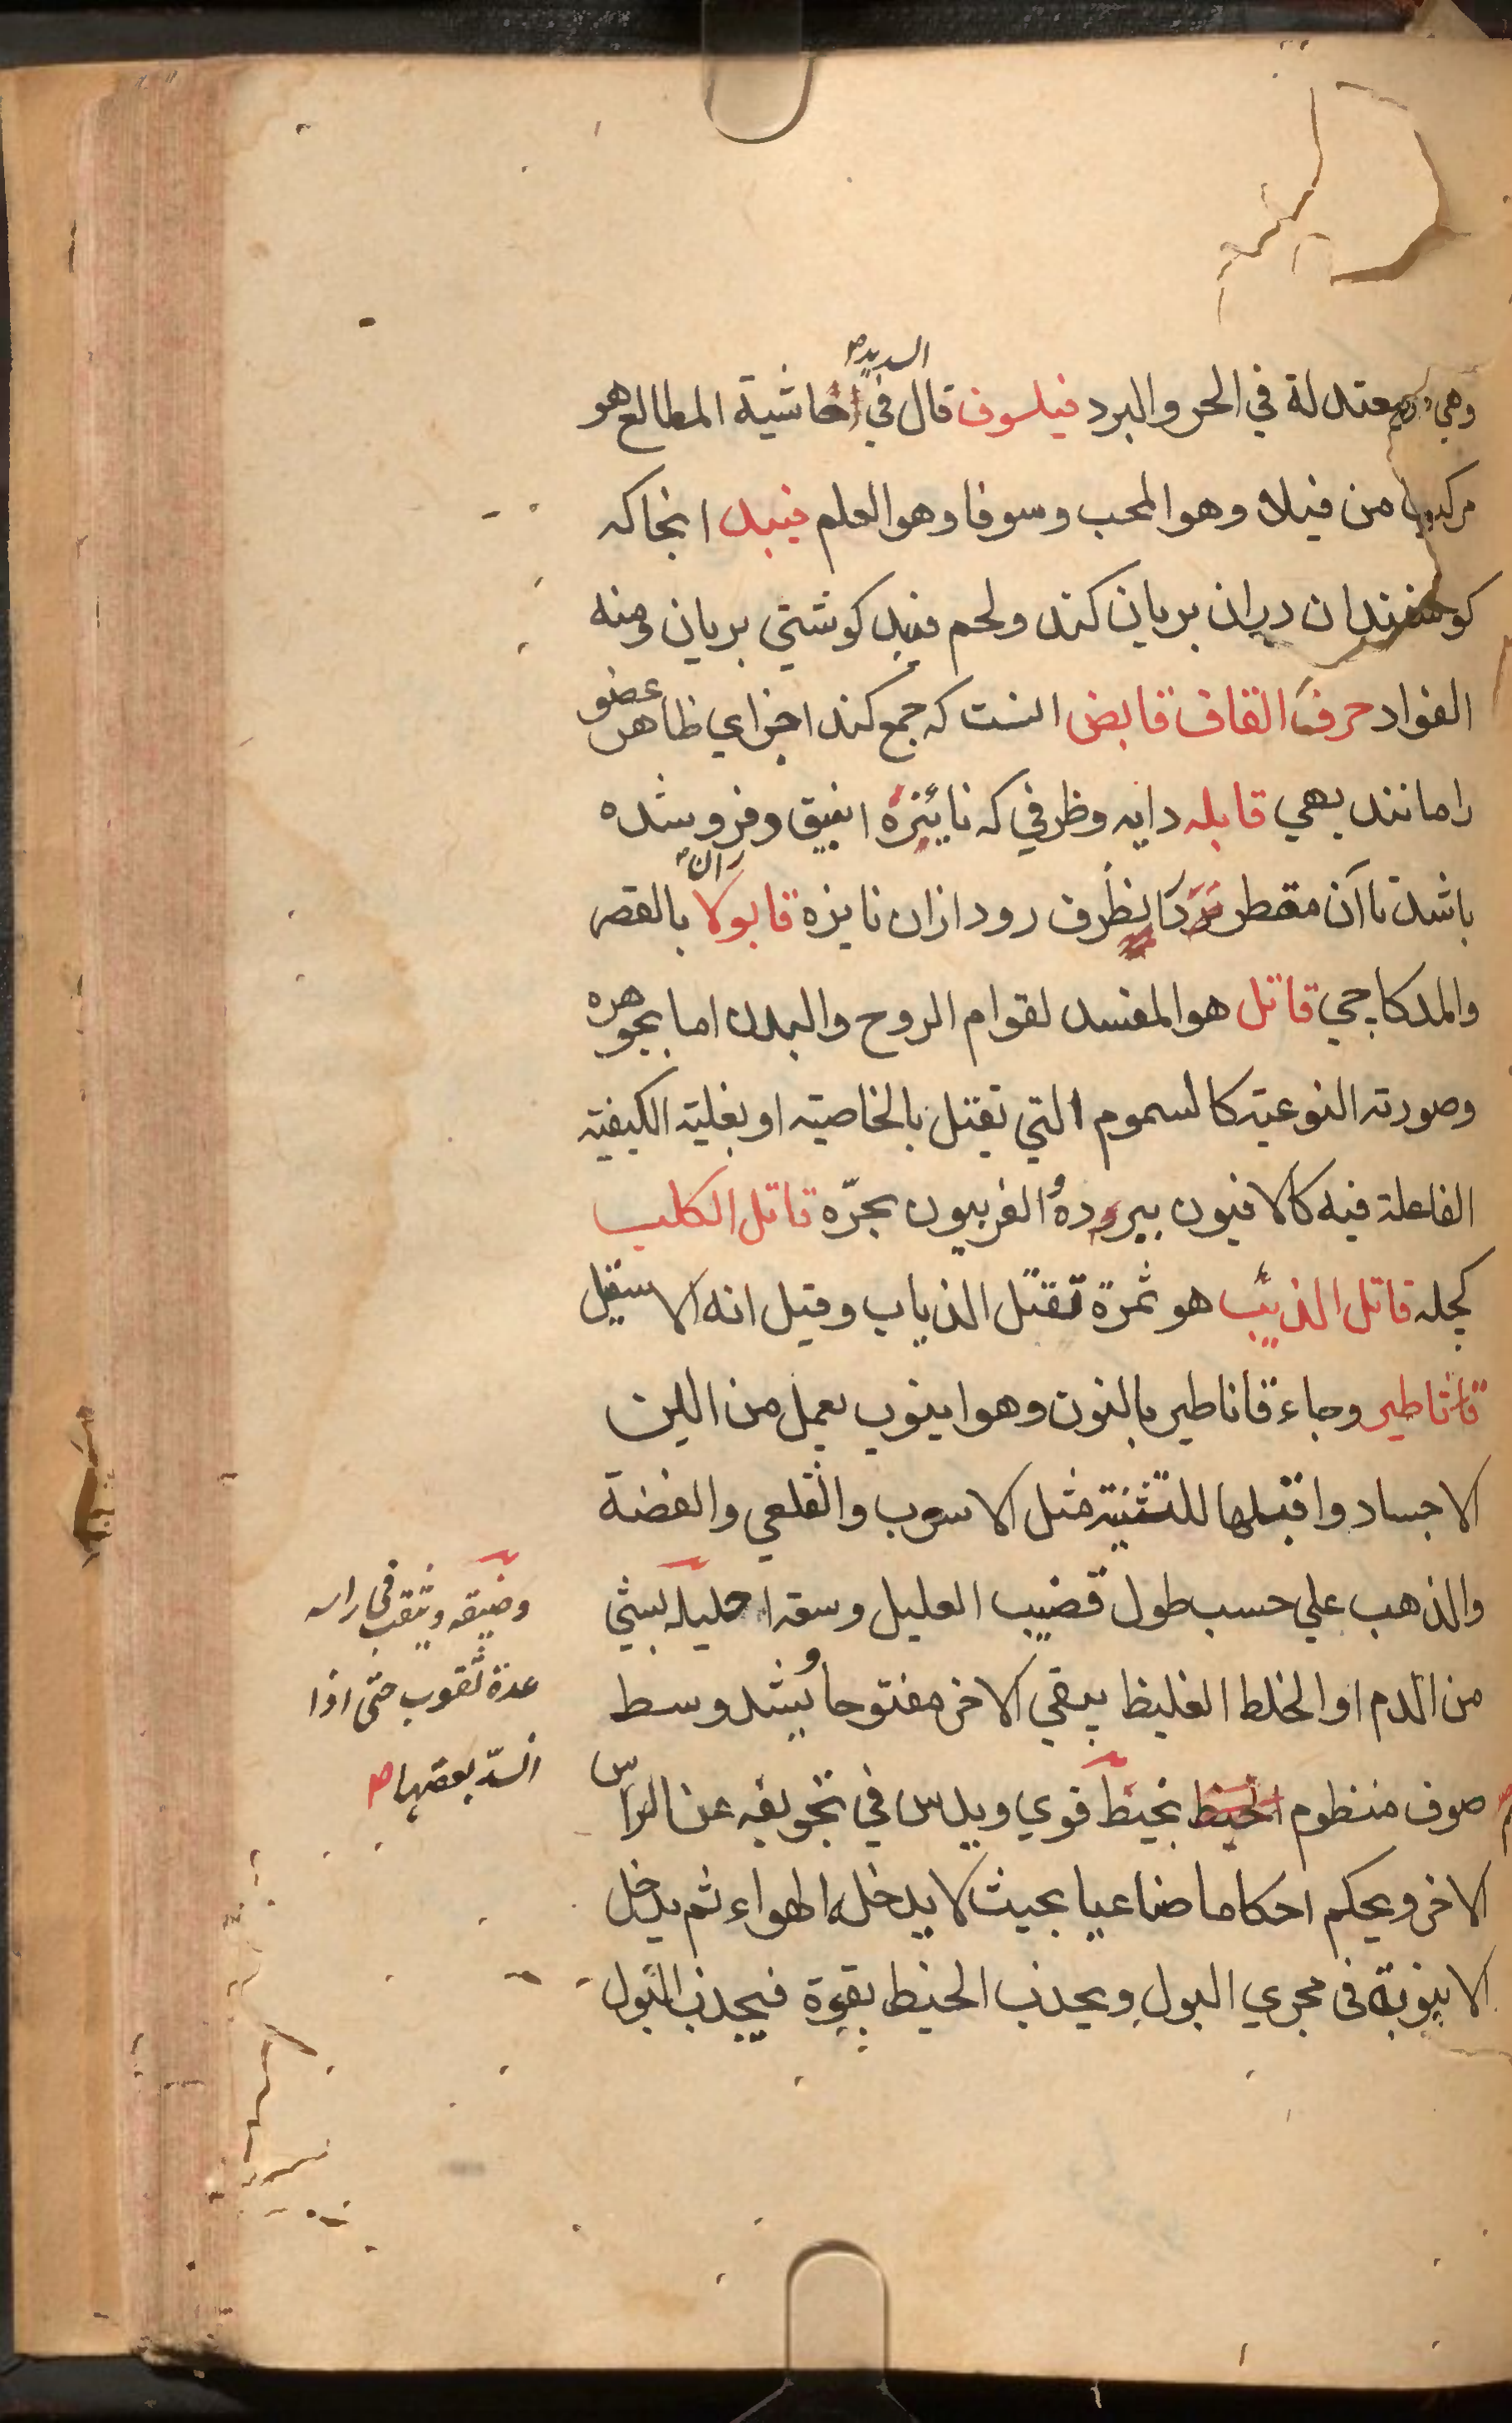 وهي معتدلة في الحر والبرد فيلسوف قال السيد في حاشية المطالع هو
مركب من فيلا وهو المحب وسوفا وهو العلم فيبد انجاكه
كوسفندان دران بريان كند ولحم فئيد كوشتي بريان ومنه
الفواد حرف القاف قابض انست كه جمع كند اجزاي ظاهر عضو
را مانند بهي قابله دايه وظرفي كه نايئزهٔ انبيق وفرو شده
باشد تا آن مقطر دران ظرف رود ازان نايزه قابولا بالقصر
والمد كاجي قاتل هو المفسد لقوام الروح والبدن اما بجوهره
وصورته النوعية كالسموم التي تقتل بالخاصيته او بغلبته الكيفيته
الفاعلة فيه كالافيون ببروده والفربيون بحرّه قاتل الكلب
كچله قاتل الذئب هو ثمرة تقتل الذياب وقيل انه الاسقيل
قاثاطير وجاء قاناطير بالنون وهو اينوب يعمل من اللين
الاجساد واقبلها للتثنية مثل الاسرب والقلعي والفضة
والذهب علي حسب طول قضيب العليل وسعة احليله بشئ
من الدم او الخلط الغليظ يبقي الاخر مفتوحا ويشد وسط
صوف منظوم بخيط قوي ويدس في تجويفه عن الراس
الاخر ويحكم احكاما صناعيا بحيث لا يدخله الهواء ثم يدخل
الانبوبة فى مجري البول ويجذب الخيط بقوة فيجذب البول
وضيقه ويثقب فى راسه
عدة ثقوب حتى اذا
انسدّ بعضها